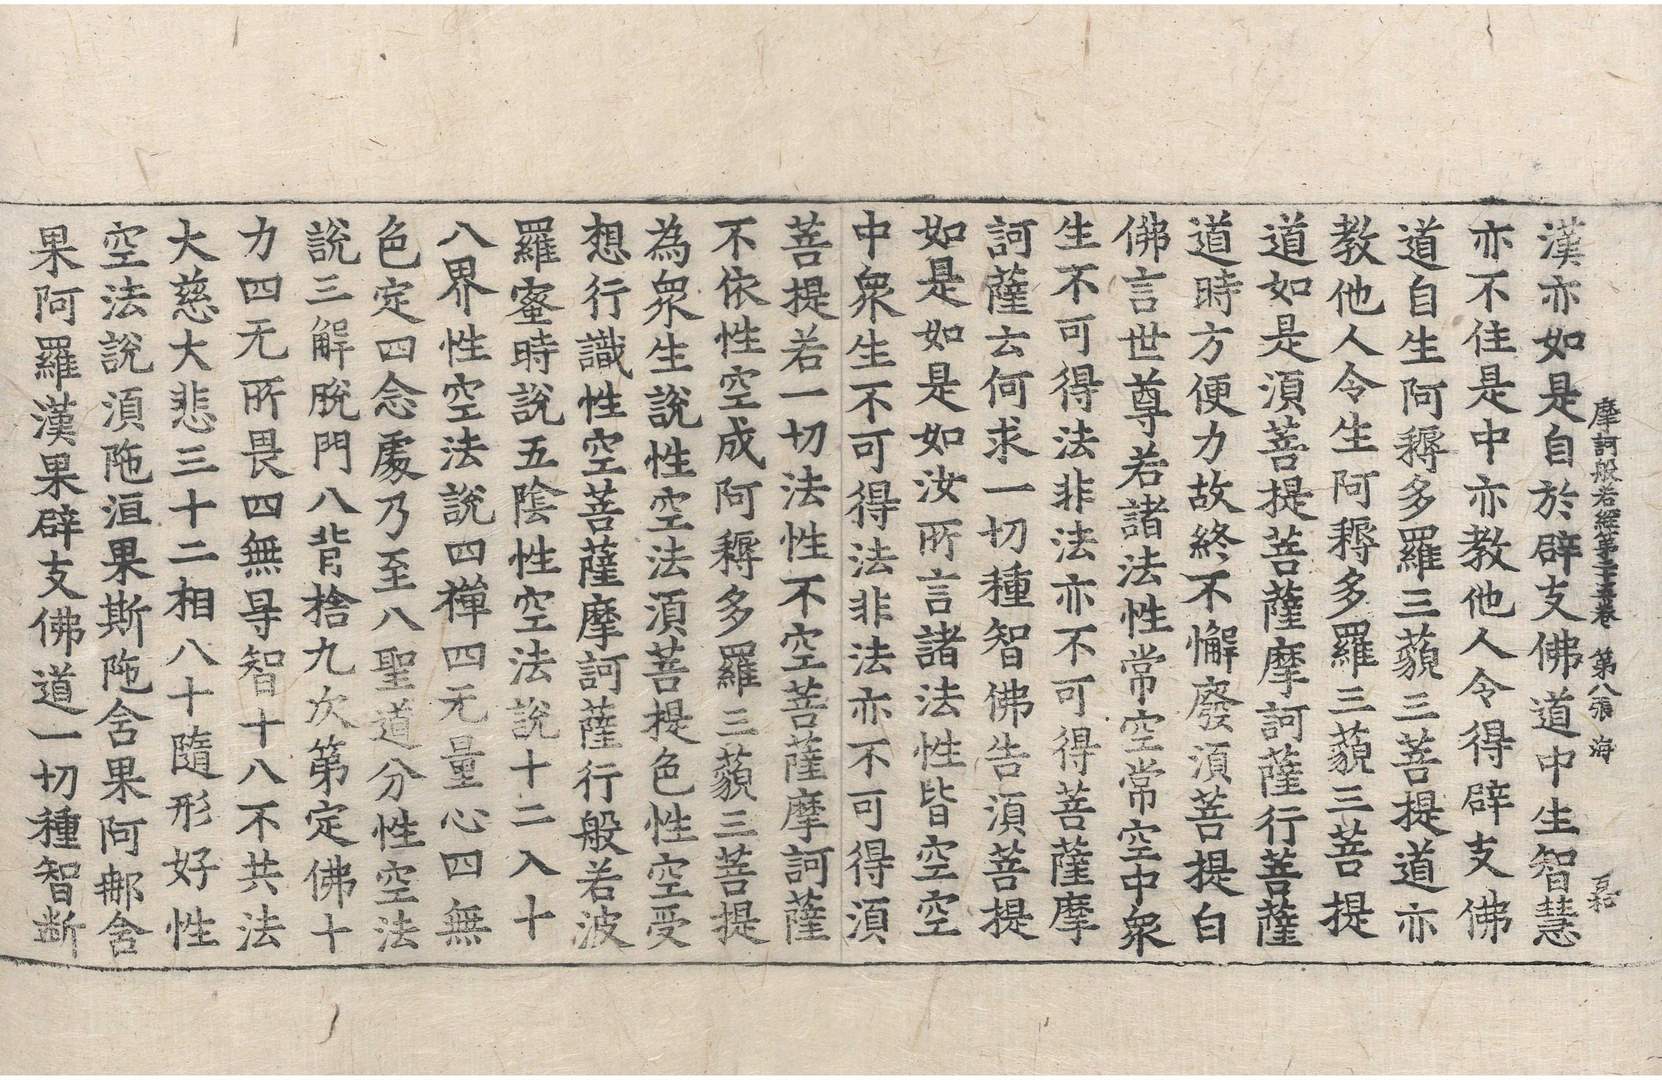 摩訶般若經第二十五卷 第八張 海
漢亦如是自於辟支佛道中生智慧
亦不住是中亦教他人令得辟支佛
道自生阿耨多羅三藐三菩提道亦
教他人令生阿耨多羅三藐三菩提
道如是湏菩提菩薩摩訶薩行菩薩
道時方便力故終不懈廢湏菩提白
佛言世尊若諸法性常空常空中衆
生不可得法非法亦不可得菩薩摩
訶薩云何求一切種智佛告湏菩提
如是如是如汝所言諸法性皆空空
中衆生不可得法非法亦不可得湏
菩提若一切法性不空菩薩摩訶薩
不依性空成阿耨多羅三藐三菩提
為衆生說性空法湏菩提色性空受
想行識性空菩薩摩訶薩行般若波
羅蜜時說五陰性空法說十二入十
八界性空法說四禪四无量心四無
色定四念處乃至八聖道分性空法
說三解脫門八背捨九次第定佛十
力四无所畏四無㝵智十八不共法
大慈大悲三十二相八十隨形好性
空法說湏陁洹果斯陁含果阿那含
果阿羅漢果辟支佛道一切種智斷